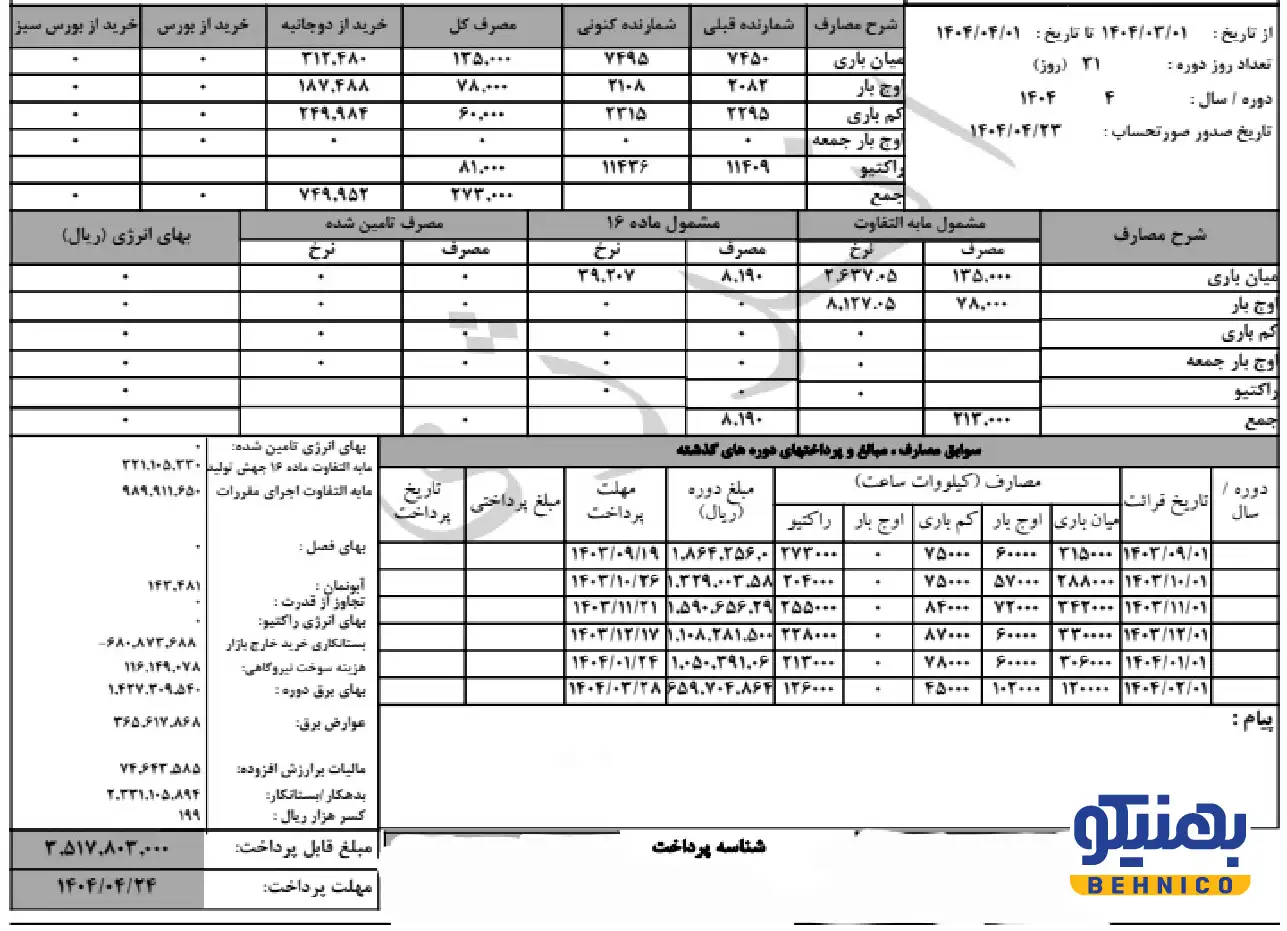 از تاریخ : ۱۴۰۴/۰۳/۰۱ تا تاریخ : ۱۴۰۴/۰۴/۰۱
تعداد روز دوره : ۳۱ (روز)
دوره / سال : ۴ ۱۴۰۴
تاریخ صدور صورتحساب : ۱۴۰۴/۰۴/۲۳
شرح مصارف شمارنده قبلی شمارنده کنونی مصرف کل خرید از دوجانبه خرید از بورس خرید از بورس سبز
میان باری ۷۴۵۰ ۷۴۹۵ ۱۳۵,۰۰۰ ۳۱۲,۴۸۰ ۰ ۰
اوج بار ۲۰۸۲ ۲۱۰۸ ۷۸,۰۰۰ ۱۸۷,۴۸۸ ۰ ۰
کم باری ۲۲۹۵ ۲۳۱۵ ۶۰,۰۰۰ ۲۴۹,۹۸۴ ۰ ۰
اوج بار جمعه ۰ ۰ ۰ ۰ ۰ ۰
راکتیو ۱۱۴۰۹ ۱۱۴۳۶ ۸۱,۰۰۰
جمع ۲۷۳,۰۰۰ ۷۴۹,۹۵۲ ۰ ۰
شرح مصارف مشمول مابه التفاوت مشمول ماده ۱۶ مصرف تامین شده بهای انرژی (ریال)
مصرف نرخ مصرف نرخ مصرف نرخ
میان باری ۱۳۵,۰۰۰ ۲,۶۳۷.۰۵ ۸,۱۹۰ ۳۹,۲۰۷ ۰ ۰ ۰
اوج بار ۷۸,۰۰۰ ۸,۱۲۷.۰۵ ۰ ۰ ۰ ۰ ۰
کم باری ۰ ۰ ۰ ۰ ۰ ۰
اوج بار جمعه ۰ ۰ ۰ ۰ ۰ ۰
راکتیو ۰ ۰ ۰ ۰
جمع ۲۱۳,۰۰۰ ۸,۱۹۰ ۰ ۰
سوابق مصارف ، مبالغ و پرداختهای دوره های گذشته
دوره / سال تاریخ قرائت مصارف (کیلووات ساعت) مبلغ دوره (ریال) مهلت پرداخت مبلغ پرداختی تاریخ پرداخت
میان باری اوج بار کم باری اوج بار راکتیو
۱۴۰۳/۰۹/۰۱ ۳۱۵۰۰۰ ۶۰۰۰۰ ۷۵۰۰۰ ۰ ۲۷۳۰۰۰ ۱,۸۶۴,۲۵۶,۰ ۱۴۰۳/۰۹/۱۹
۱۴۰۳/۱۰/۰۱ ۲۸۸۰۰۰ ۵۷۰۰۰ ۷۵۰۰۰ ۰ ۲۰۴۰۰۰ ۱,۲۲۹,۰۰۳,۵۸ ۱۴۰۳/۱۰/۲۶
۱۴۰۳/۱۱/۰۱ ۳۴۲۰۰۰ ۷۲۰۰۰ ۸۴۰۰۰ ۰ ۲۵۵۰۰۰ ۱,۵۹۰,۶۵۶,۲۹ ۱۴۰۳/۱۱/۲۱
۱۴۰۳/۱۲/۰۱ ۳۳۰۰۰۰ ۶۰۰۰۰ ۸۷۰۰۰ ۰ ۲۲۸۰۰۰ ۱,۱۰۸,۲۸۱,۵۰۰ ۱۴۰۳/۱۲/۱۷
۱۴۰۴/۰۱/۰۱ ۳۰۶۰۰۰ ۶۰۰۰۰ ۷۸۰۰۰ ۰ ۲۱۳۰۰۰ ۱,۰۵۰,۳۹۱,۰۶ ۱۴۰۴/۰۱/۲۴
۱۴۰۴/۰۲/۰۱ ۱۲۰۰۰۰ ۱۰۲۰۰۰ ۴۵۰۰۰ ۰ ۱۲۶۰۰۰ ۶۵۹,۷۰۴,۸۶۴ ۱۴۰۴/۰۳/۲۸
پیام :
بهای انرژی تامین شده: ۰
مابه التفاوت ماده ۱۶ جهش تولید ۳۲۱,۱۰۵,۳۳۰
مابه التفاوت اجرای مقررات ۹۸۹,۹۱۱,۶۵۰
بهای فصل : ۰
آبونمان : ۱۴۳,۴۸۱
تجاوز از قدرت : ۰
بهای انرژی راکتیو: ۰
بستانکاری خرید خارج بازار -۶۸۰,۸۷۳,۶۸۸
هزینه سوخت نیروگاهی: ۱۱۶,۱۴۹,۰۷۸
بهای برق دوره : ۱,۴۲۷,۳۰۹,۵۴۰
عوارض برق: ۳۶۵,۶۱۷,۸۶۸
مالیات برارزش افزوده: ۷۴,۶۴۳,۵۸۵
بدهکار/بستانکار: ۲,۳۳۱,۱۰۵,۸۹۴
کسر هزار ریال : ۱۹۹
مبلغ قابل پرداخت: ۳,۵۱۷,۸۰۳,۰۰۰
مهلت پرداخت: ۱۴۰۴/۰۴/۲۴
شناسه پرداخت
بهنیکو
BEHNICO